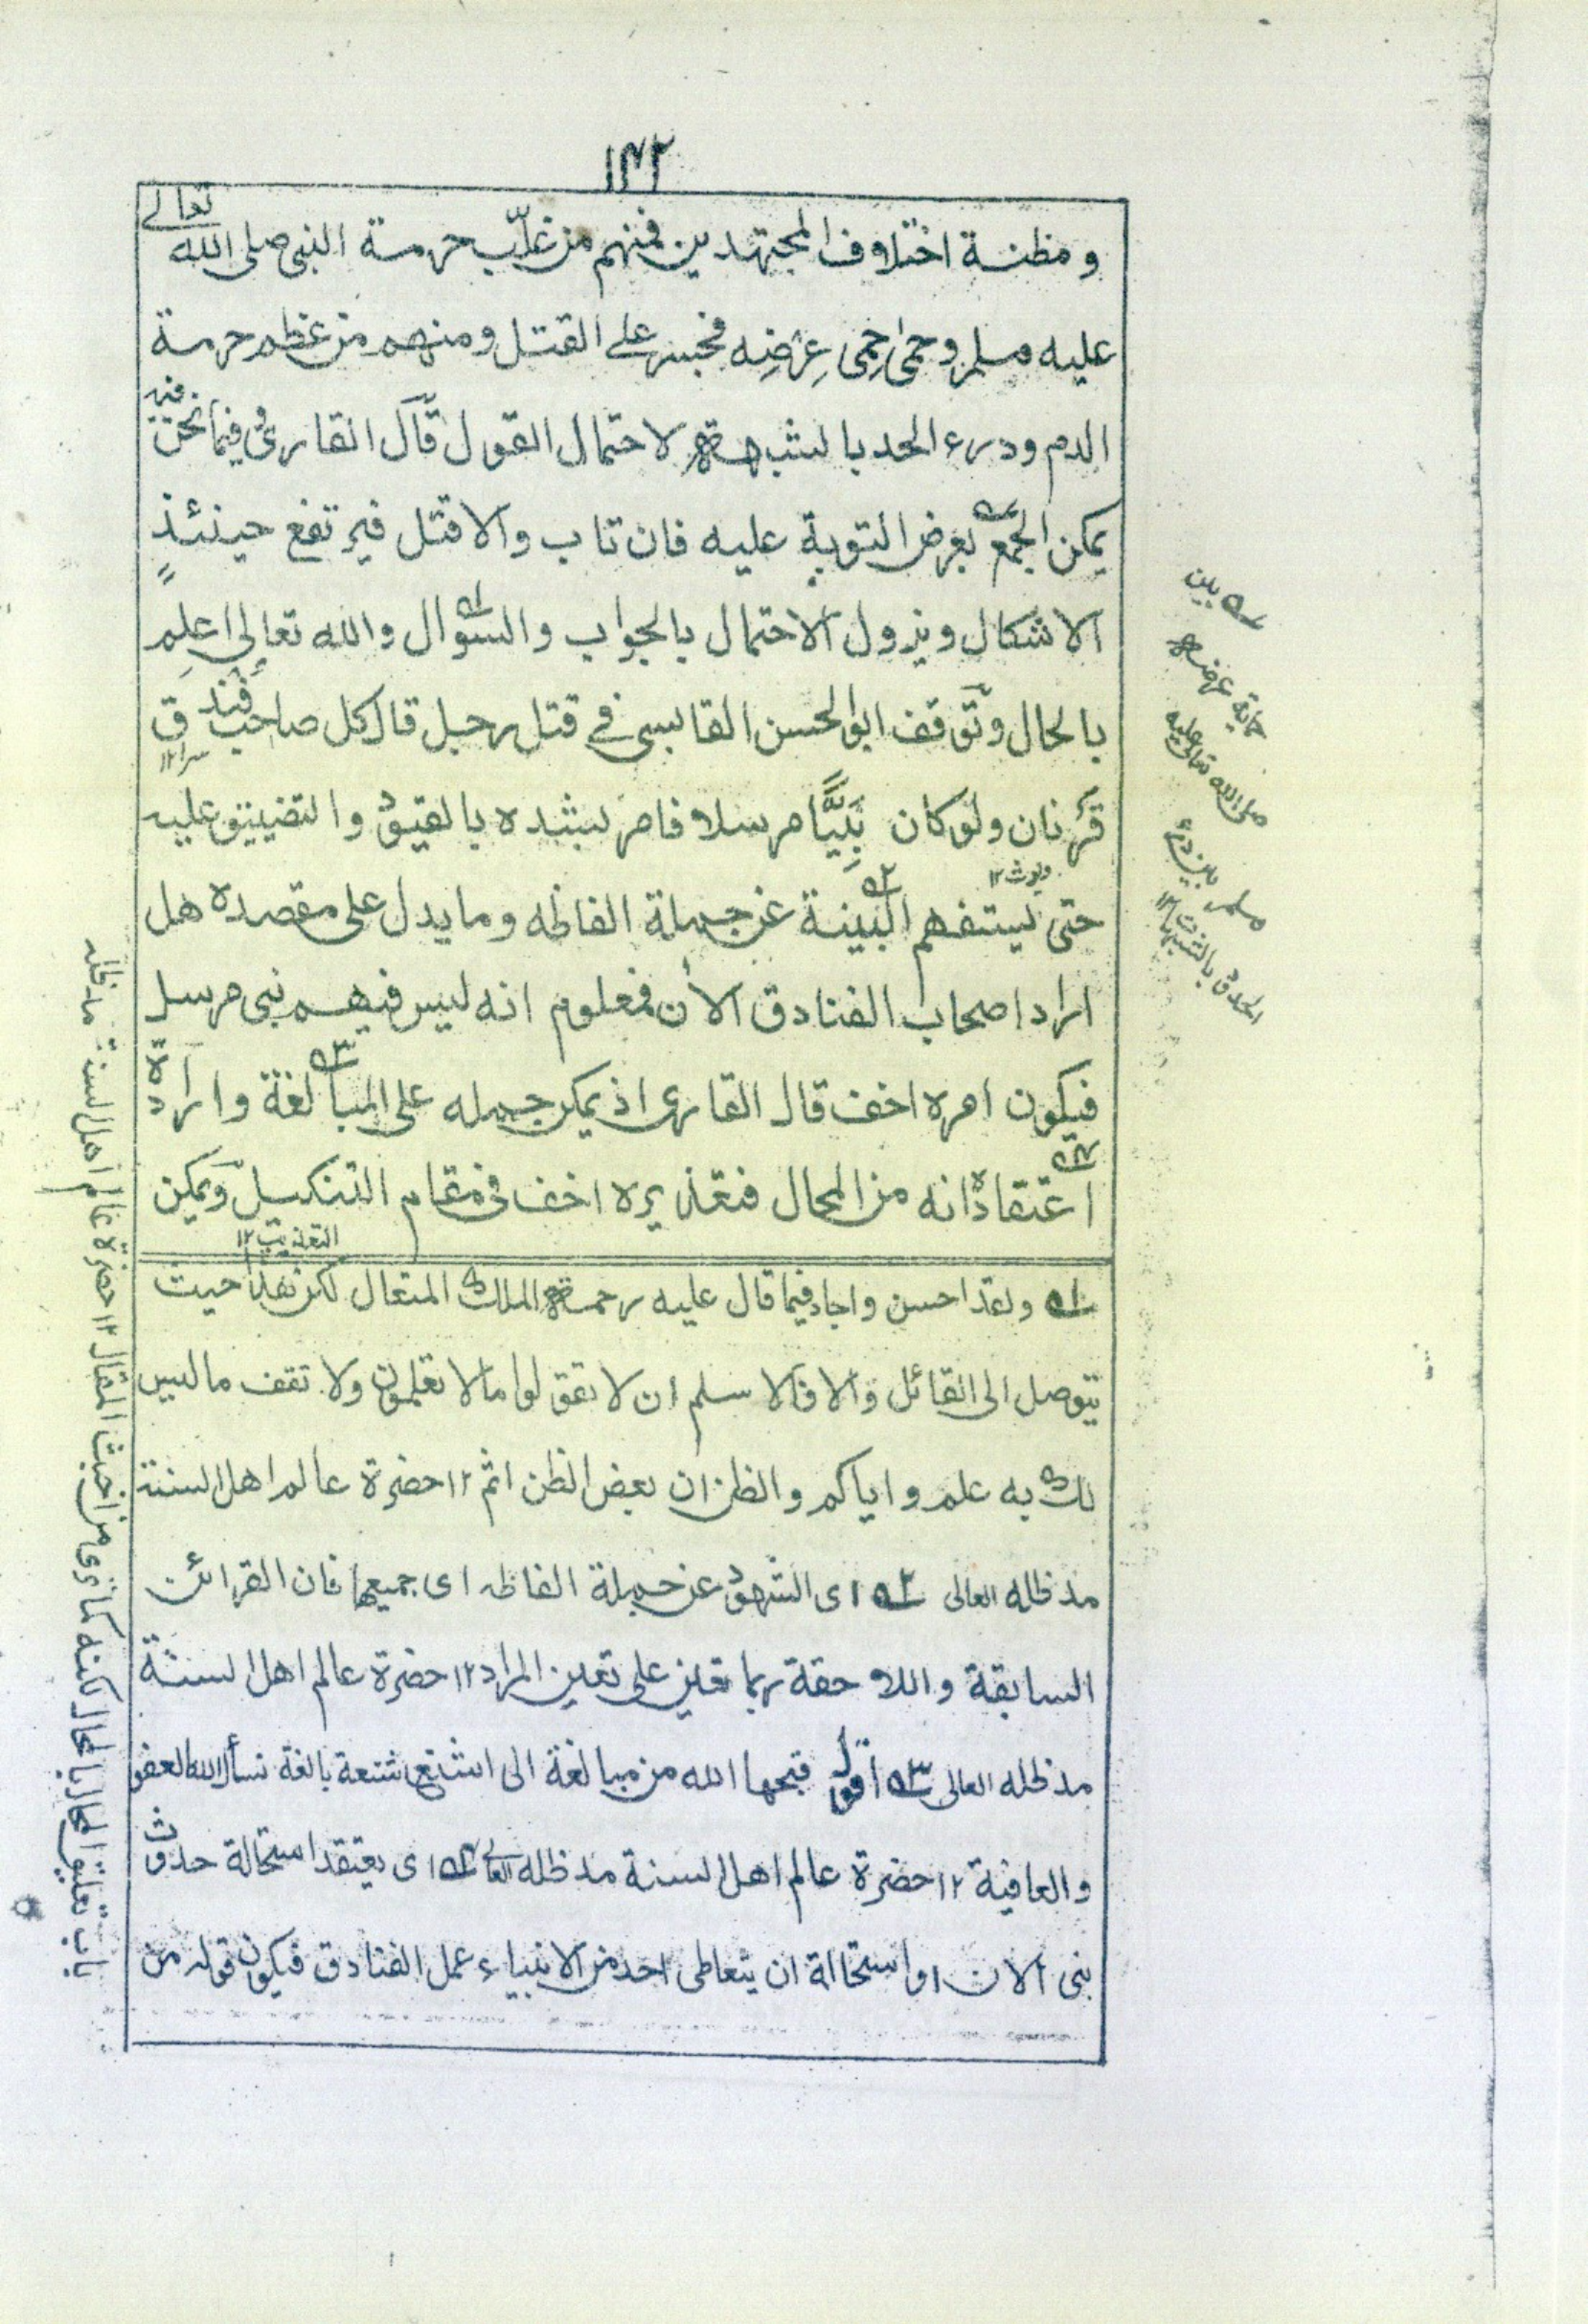 ١٣٢
ومظنة اختلاف المجتهدين فمنهم من غلّب حرمة النبى صلى الله تعالى
عليه وسلم وحمى حِمى عِرْضِه فجسر على القتل ومنهم من عظم حرمة
الدم ودرء الحد بالشبهة لاحتمال القول قال القارئ وفيما نحن فيه
يمكن الجمع بعرض التوبة عليه فان تاب والا قتل فيرتفع حينئذٍ
الاشكال ويزول الاحتمال بالجواب والسؤال والله تعالى اعلم
بالحال وتوقف ابو الحسن القابسى فى قتل رجل قال كل صاحب فندق
سرا ١٢
قَرْنان ولو كان نَبِيًّا مرسلا فامر بشده بالقيود والتضييق عليه
ديوث ١٢
حتى يستفهم البينة عن جملة الفاظه وما يدل على مقصده هل
اراد اصحاب الفنادق الأن فمعلوم انه ليس فيهم نبى مرسل
فيكون امره اخف قال القارى اذ يمكن حمله على المبالغة وارادة
اعتقاده انه من المحال فتعزيره اخف فى مقام التنكيل ويمكن
التعذيب ١٢
١ه ولقد احسن واجاد فيما قال عليه رحمة الملك المتعال لكن هذا حيث
يتوصل الى القائل والا فالاسلم ان لا تقولوا ما لا تعلمون ولا تقف ما ليس
لك به علم واياكم والظن ان بعض الظن اثم ١٢ حضرة عالم اهل السنة
مد ظله العالى ٢ه اى الشهود عن جملة الفاظه اى جميعها فان القرائن
السابقة واللاحقة ربما تعين على تعين المراد ١٢ حضرة عالم اهل السنة
مد ظله العالى ٣ه اقول قبحها الله من مبالغة الى اشنع شنعة بالغة نسأل الله العفو
والعافية ١٢ حضرة عالم اهل السنة مد ظله العالى ٤ه اى يعتقد استحالة حدوث
نبى الان او استحالة ان يتعاطى احد من الانبياء عمل الفنادق فيكون قوله من
١ه بين
حماية عرضه
صلى الله تعالى عليه
وسلم بين درئ
الحدود بالشبهات ١٢
باب تعليق المحال بالمحال لكنه كما ترى من اخبث المقال ١٢ حضرة عالم اهل السنة مد ظله